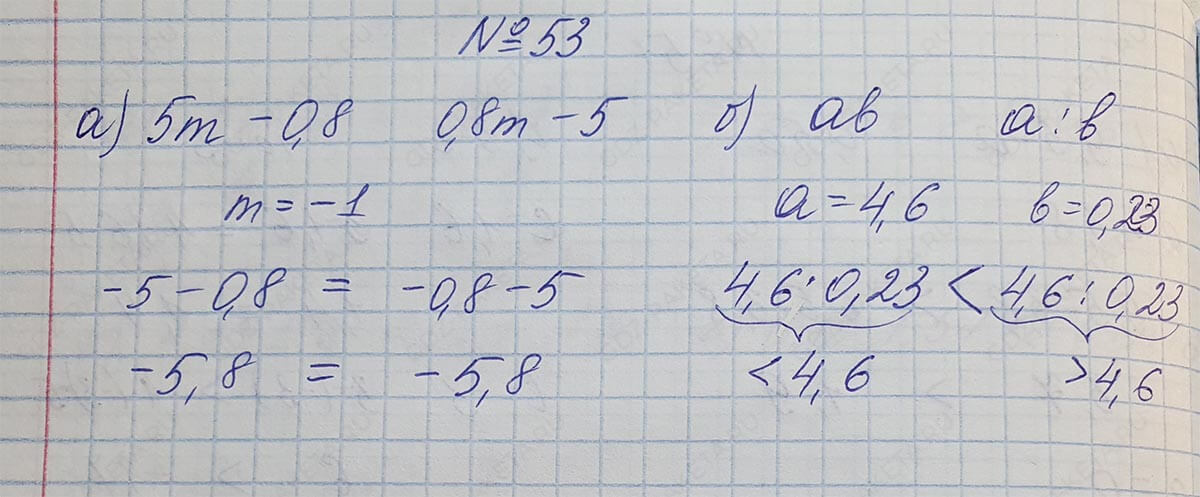 № 53
а) 5m - 0,8 0,8m - 5 б) ab a : b
m = -1 a = 4,6 b = 0,23
-5 - 0,8 = -0,8 - 5 4,6 : 0,23 < 4,6 : 0,23
-5,8 = -5,8 < 4,6 > 4,6